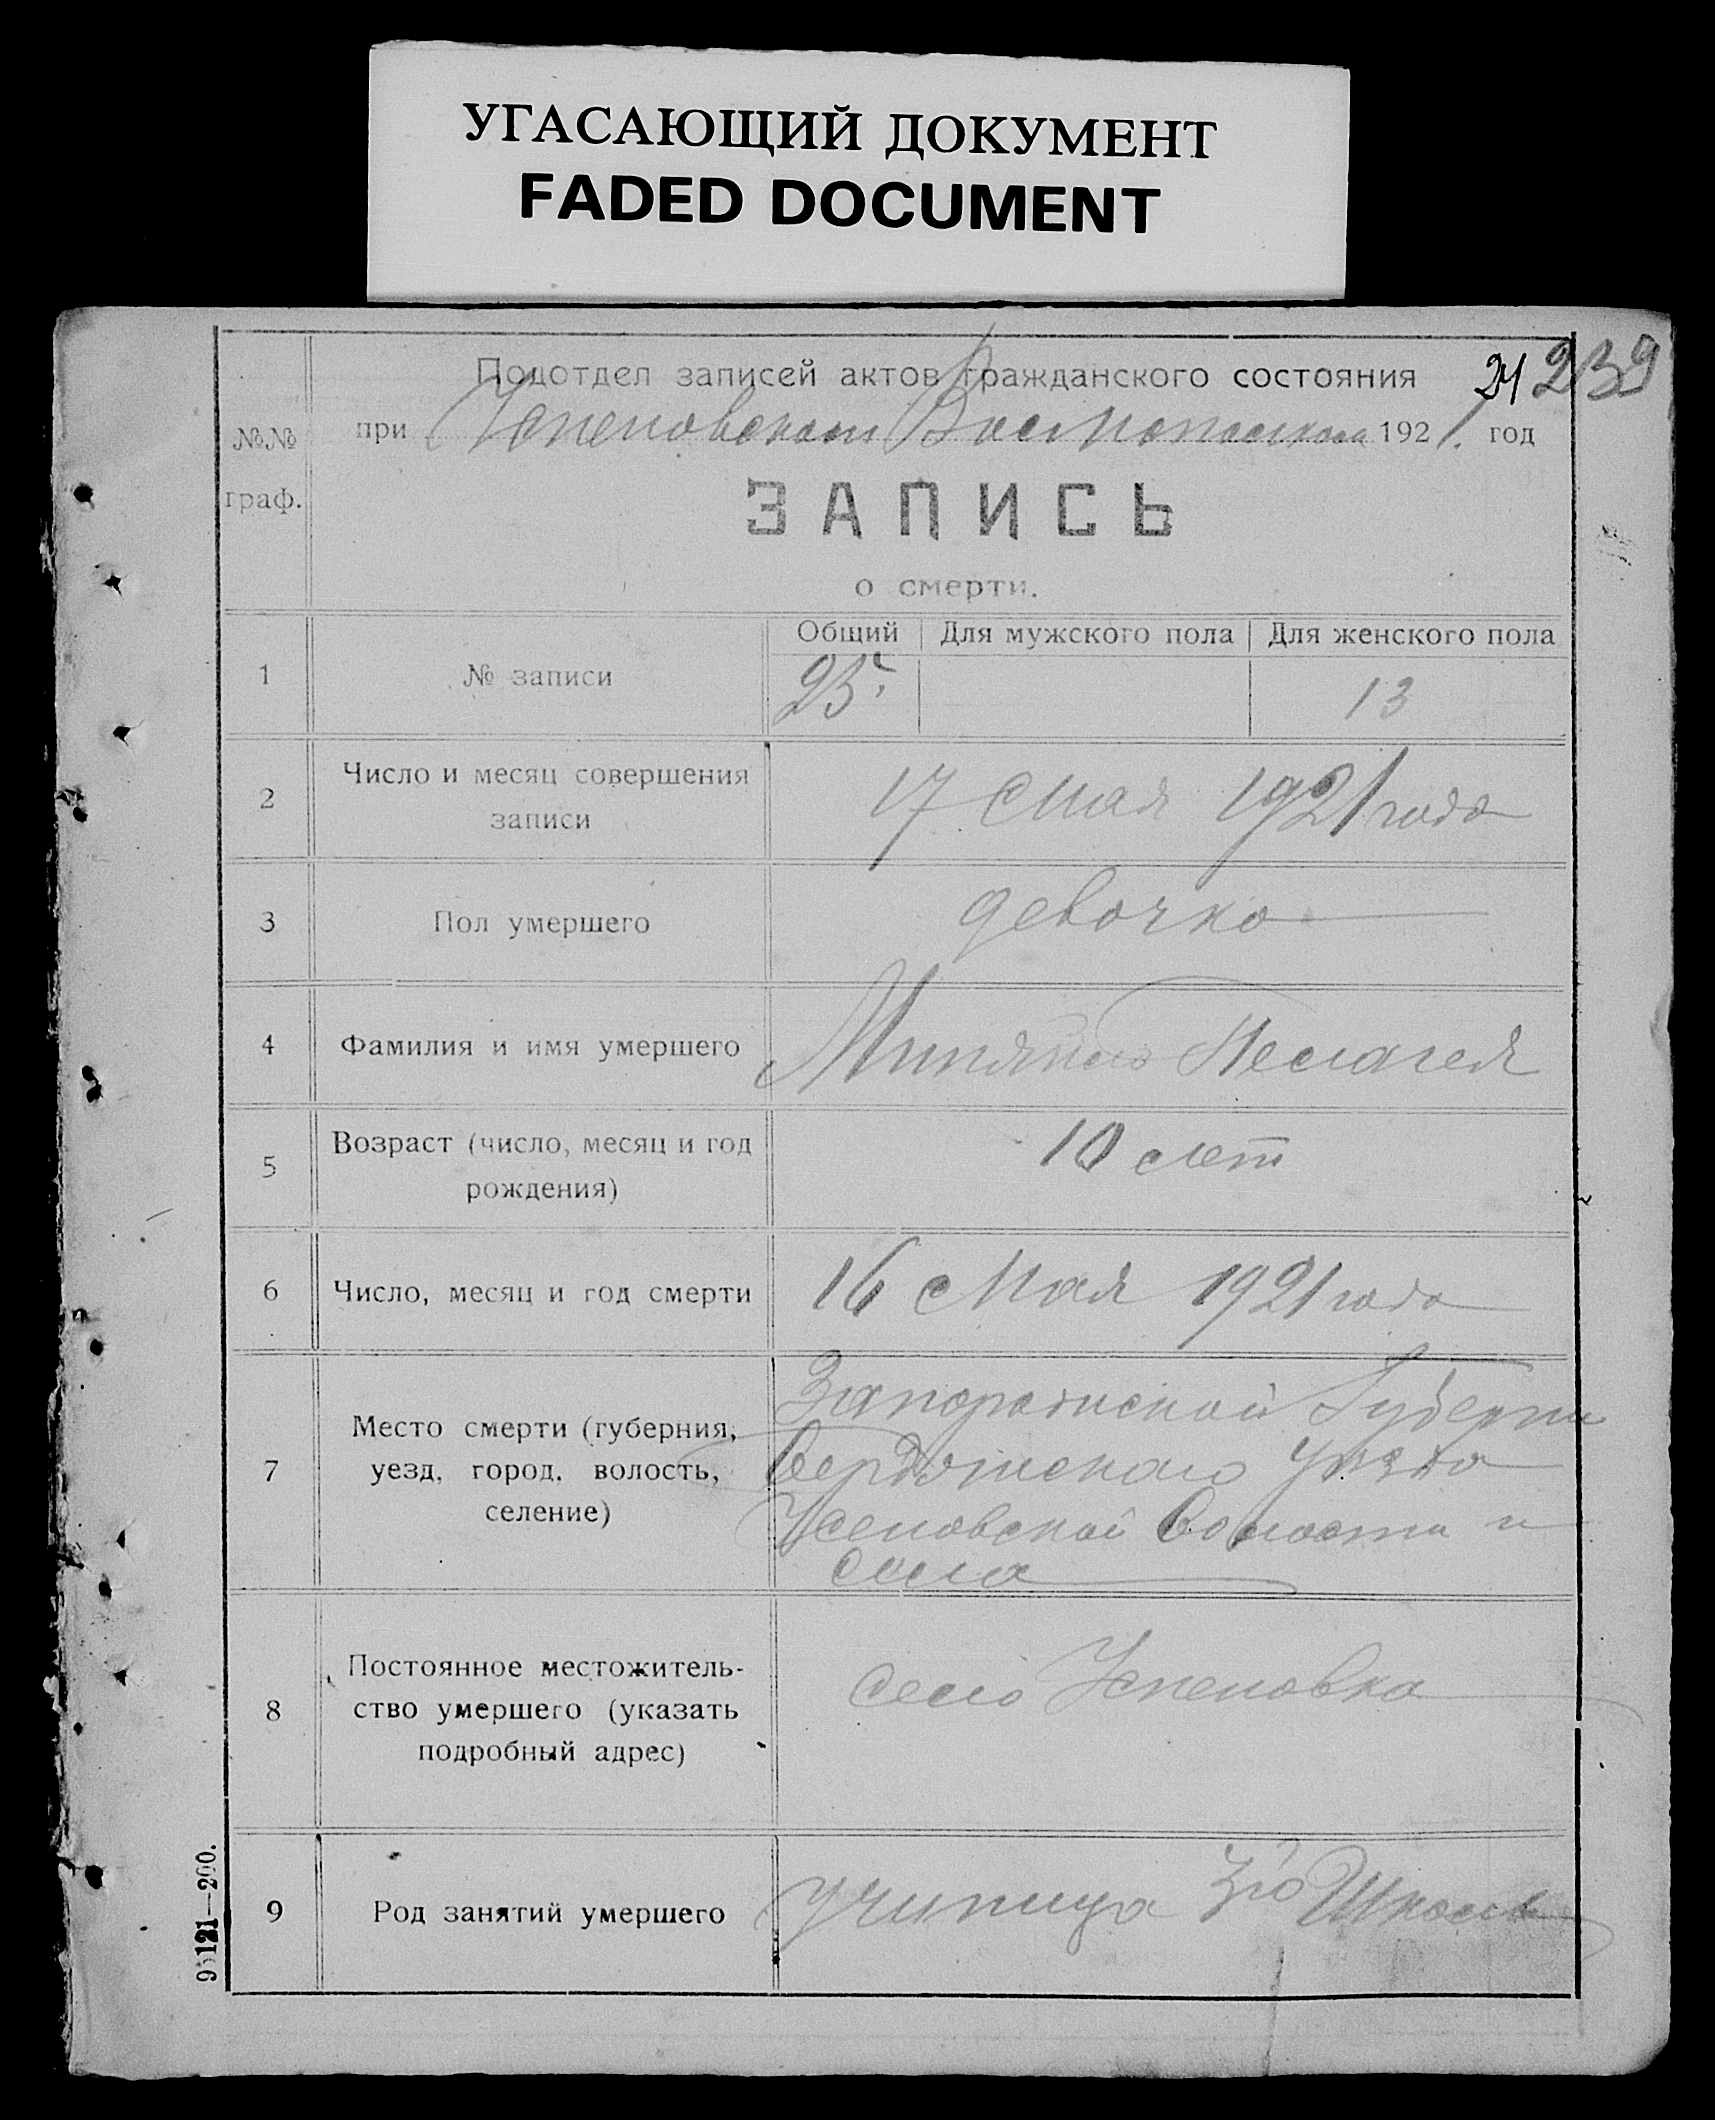 УГАСАЮЩИЙ ДОКУМЕНТ
FADED DOCUMENT
24 239
Подотдел записей актов гражданского состояния
при Успеновском 1921. год
№№ граф.
ЗАПИСЬ
о смерти.
Общий Для мужского пола Для женского пола
1 № записи 25. 13
2 Число и месяц совершения
записи
17 Мая 1921 года
3 Пол умершего девочка
4 Фамилия и имя умершего Пелагея
5 Возраст (число, месяц и год
рождения)
10 лет
6 Число, месяц и год смерти 16 Мая 1921 года
7 Место смерти (губерния,
уезд, город, волость,
селение)
Запорожской Губерни
Бердянскаго Уезда
Успеновской Волости и
села
8 Постоянное местожитель-
ство умершего (указать
подробный адрес)
село Успеновка
9 Род занятий умершего ученица Школы